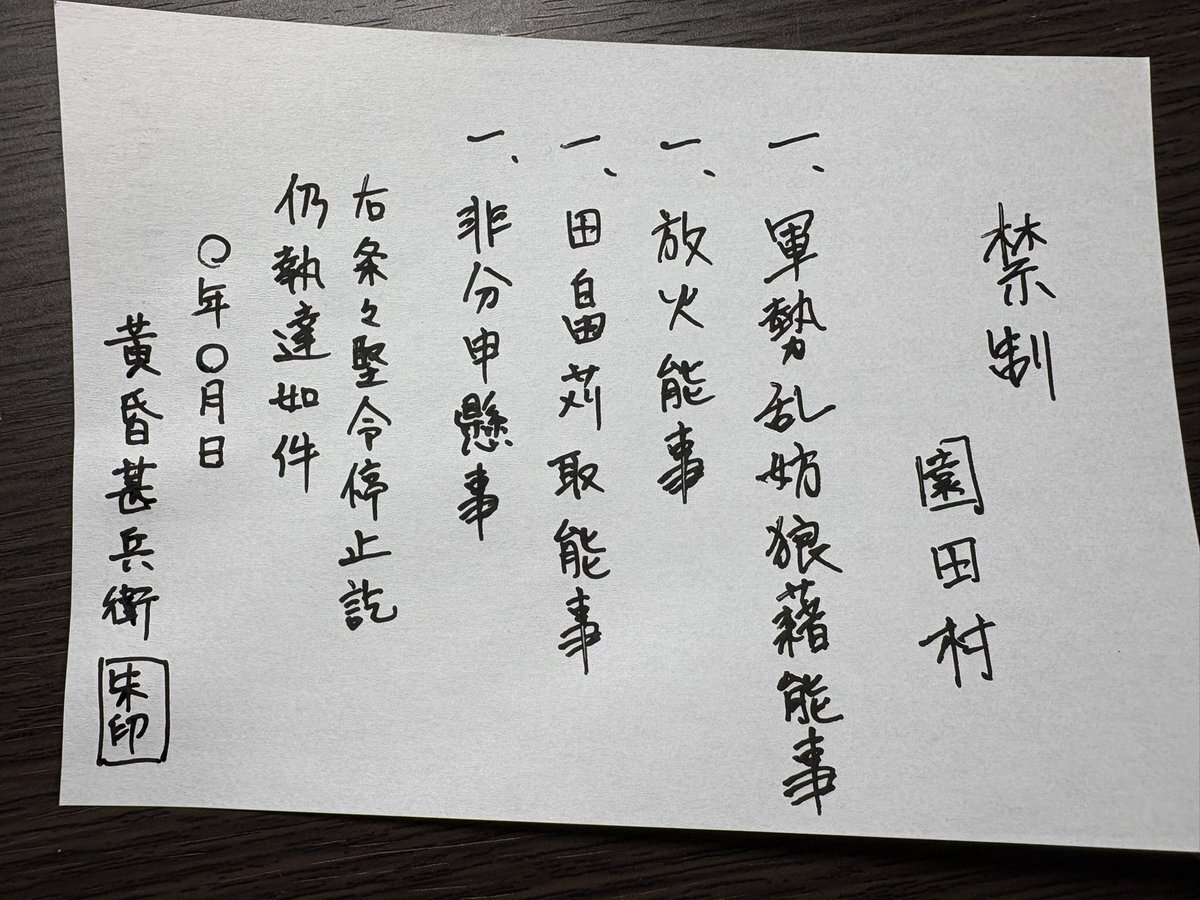 禁制
園田村
一、軍勢乱妨狼藉能事
一、放火能事
一、田畠苅取能事
一、非分申懸事
右条々堅令停止訖
仍執達如件
〇年〇月日
黄昏甚兵衛 朱印